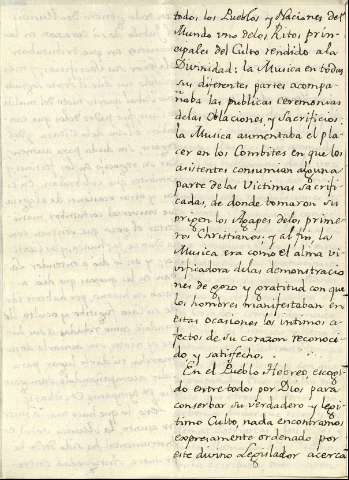 todos los Pueblos y Naciones del
Mundo uno delos Ritos prin-
cipales del Culto rendido ala
Divinidad: la Musica en todas
sus diferentes partes acompa-
ñaba las publicas ceremonias
delas Oblaciones, y Sacrificios:
la Musica aumentaba el pla-
cer en los Combites en que los
asistentes consumian alguna
parte delas Victimas sacrifi-
cadas, de donde tomaron su
origen los Agapes delos prime-
ros Christianos; y al fin, la
Musica era como el alma vi-
vificadora delas demonstracio
nes de gozo y gratitud con que
los hombres manifestaban en
estas ocasiones los intimos a-
fectos de su corazon reconoci-
do y satisfecho.
En el Pueblo Hebreo, escogi-
do entre todos por Dios para
conserbar su verdadero y legi-
timo Culto, nada encontramos
expresamente ordenado por
este divino Legislador acerca